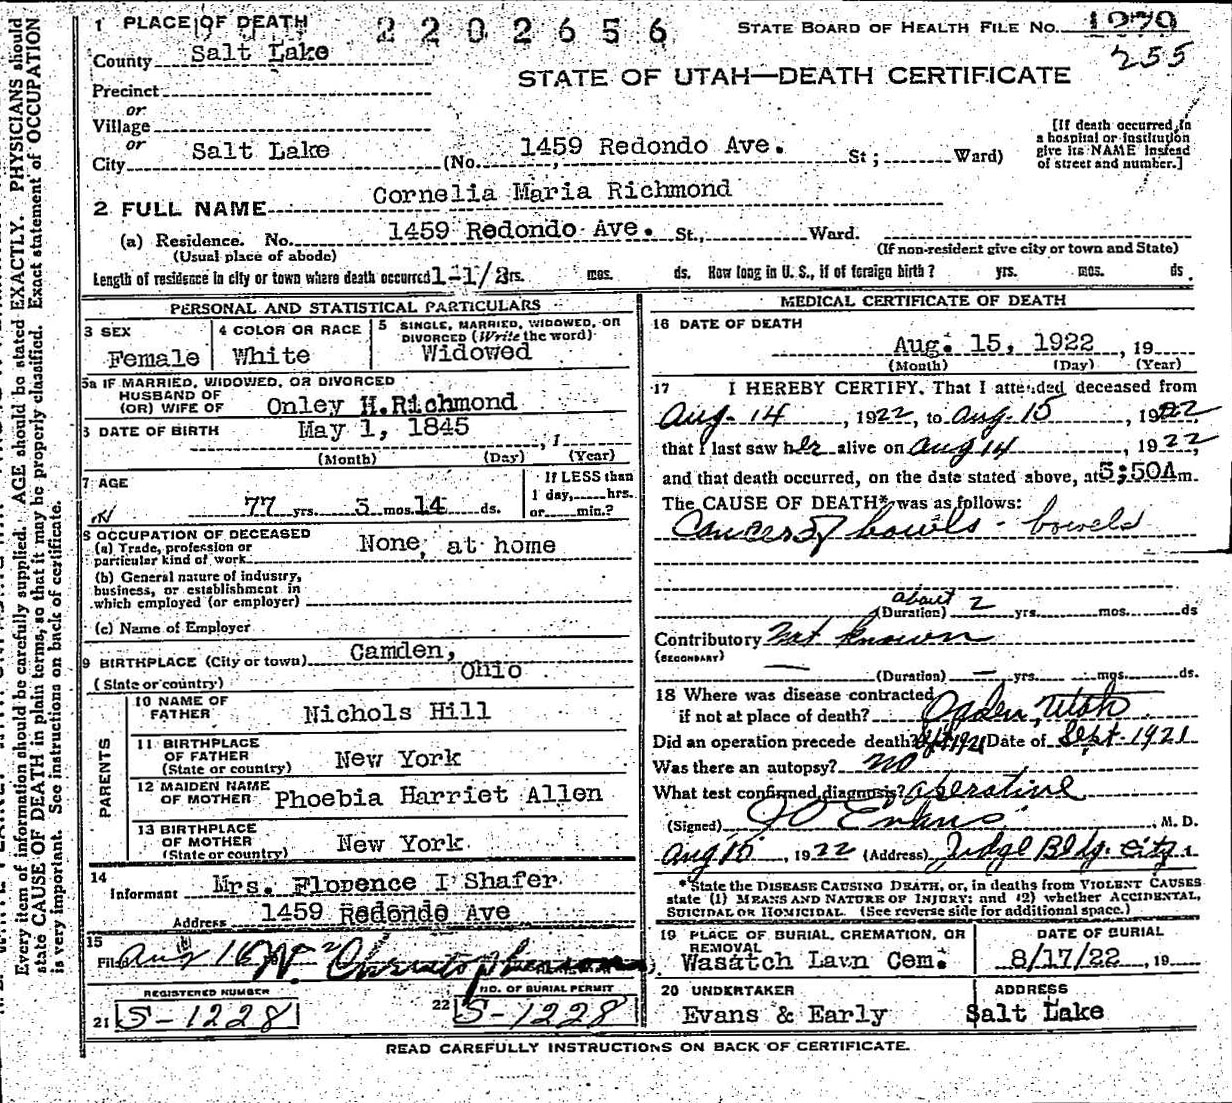 1 PLACE OF DEATH
2202656
STATE BOARD OF HEALTH FILE No. 1279
255
County Salt Lake
STATE OF UTAH—DEATH CERTIFICATE
Precinct
or
Village
or
City Salt Lake (No. 1459 Redondo Ave. St; Ward)
[If death occurred in
a hospital or institution
give its NAME instead
of street and number.]
2 FULL NAME Cornelia Maria Richmond
(a) Residence. No. 1459 Redondo Ave. St., Ward.
(Usual place of abode) (If non-resident give city or town and State)
Length of residence in city or town where death occurred 1-1/2 yrs. mos. ds. How long in U. S., if of foreign birth? yrs. mos. ds.
PERSONAL AND STATISTICAL PARTICULARS
3 SEX Female
4 COLOR OR RACE White
5 SINGLE, MARRIED, WIDOWED, OR
DIVORCED (Write the word)
Widowed
5a IF MARRIED, WIDOWED, OR DIVORCED
HUSBAND OF
(OR) WIFE OF Onley H.Richmond
6 DATE OF BIRTH May 1, 1845 , 1
(Month) (Day) (Year)
7 AGE
77 yrs. 3 mos. 14 ds.
If LESS than
1 day, hrs.
or min.?
8 OCCUPATION OF DECEASED
(a) Trade, profession or
particular kind of work None, at home
(b) General nature of industry,
business, or establishment in
which employed (or employer)
(c) Name of Employer
9 BIRTHPLACE (City or town) Camden,
(State or country) Ohio
PARENTS
10 NAME OF
FATHER Nichols Hill
11 BIRTHPLACE
OF FATHER
(State or country) New York
12 MAIDEN NAME
OF MOTHER Phoebia Harriet Allen
13 BIRTHPLACE
OF MOTHER
(State or country) New York
14
Informant Mrs. Florence I Shafer
Address 1459 Redondo Ave
15
Filed Aug 16 Christophersons
REGISTERED NUMBER
21 S-1228
NO. OF BURIAL PERMIT
22 S-1228
MEDICAL CERTIFICATE OF DEATH
16 DATE OF DEATH
Aug. 15, 1922 , 19
(Month) (Day) (Year)
17 I HEREBY CERTIFY, That I attended deceased from
Aug. 14 , 1922, to Aug. 15 , 1922
that I last saw her alive on Aug 14 , 1922,
and that death occurred, on the date stated above, at 5:50A m.
The CAUSE OF DEATH* was as follows:
Cancer of bowels - bowels
(Duration) about 2 yrs. mos. ds
Contributory Not known
(SECONDARY)
(Duration) — yrs. mos. ds.
18 Where was disease contracted
if not at place of death? Ogden, Utah
Did an operation precede death? Sept 1921 Date of Sept. 1921
Was there an autopsy? no
What test confirmed diagnosis? operative
(Signed) J O Evans , M. D.
Aug 15 , 1922 (Address) Judge Bldg. City
*State the DISEASE CAUSING DEATH, or, in deaths from VIOLENT CAUSES
state (1) MEANS AND NATURE OF INJURY; and (2) whether ACCIDENTAL,
SUICIDAL OR HOMICIDAL. (See reverse side for additional space.)
19 PLACE OF BURIAL, CREMATION, OR
REMOVAL
Wasatch Lavn Cem.
DATE OF BURIAL
8/17/22 , 19
20 UNDERTAKER
Evans & Early
ADDRESS
Salt Lake
READ CAREFULLY INSTRUCTIONS ON BACK OF CERTIFICATE.
Every item of information should be carefully supplied. AGE should be stated EXACTLY. PHYSICIANS should
state CAUSE OF DEATH in plain terms, so that it may be properly classified. Exact statement of OCCUPATION
is very important. See instructions on back of certificate.